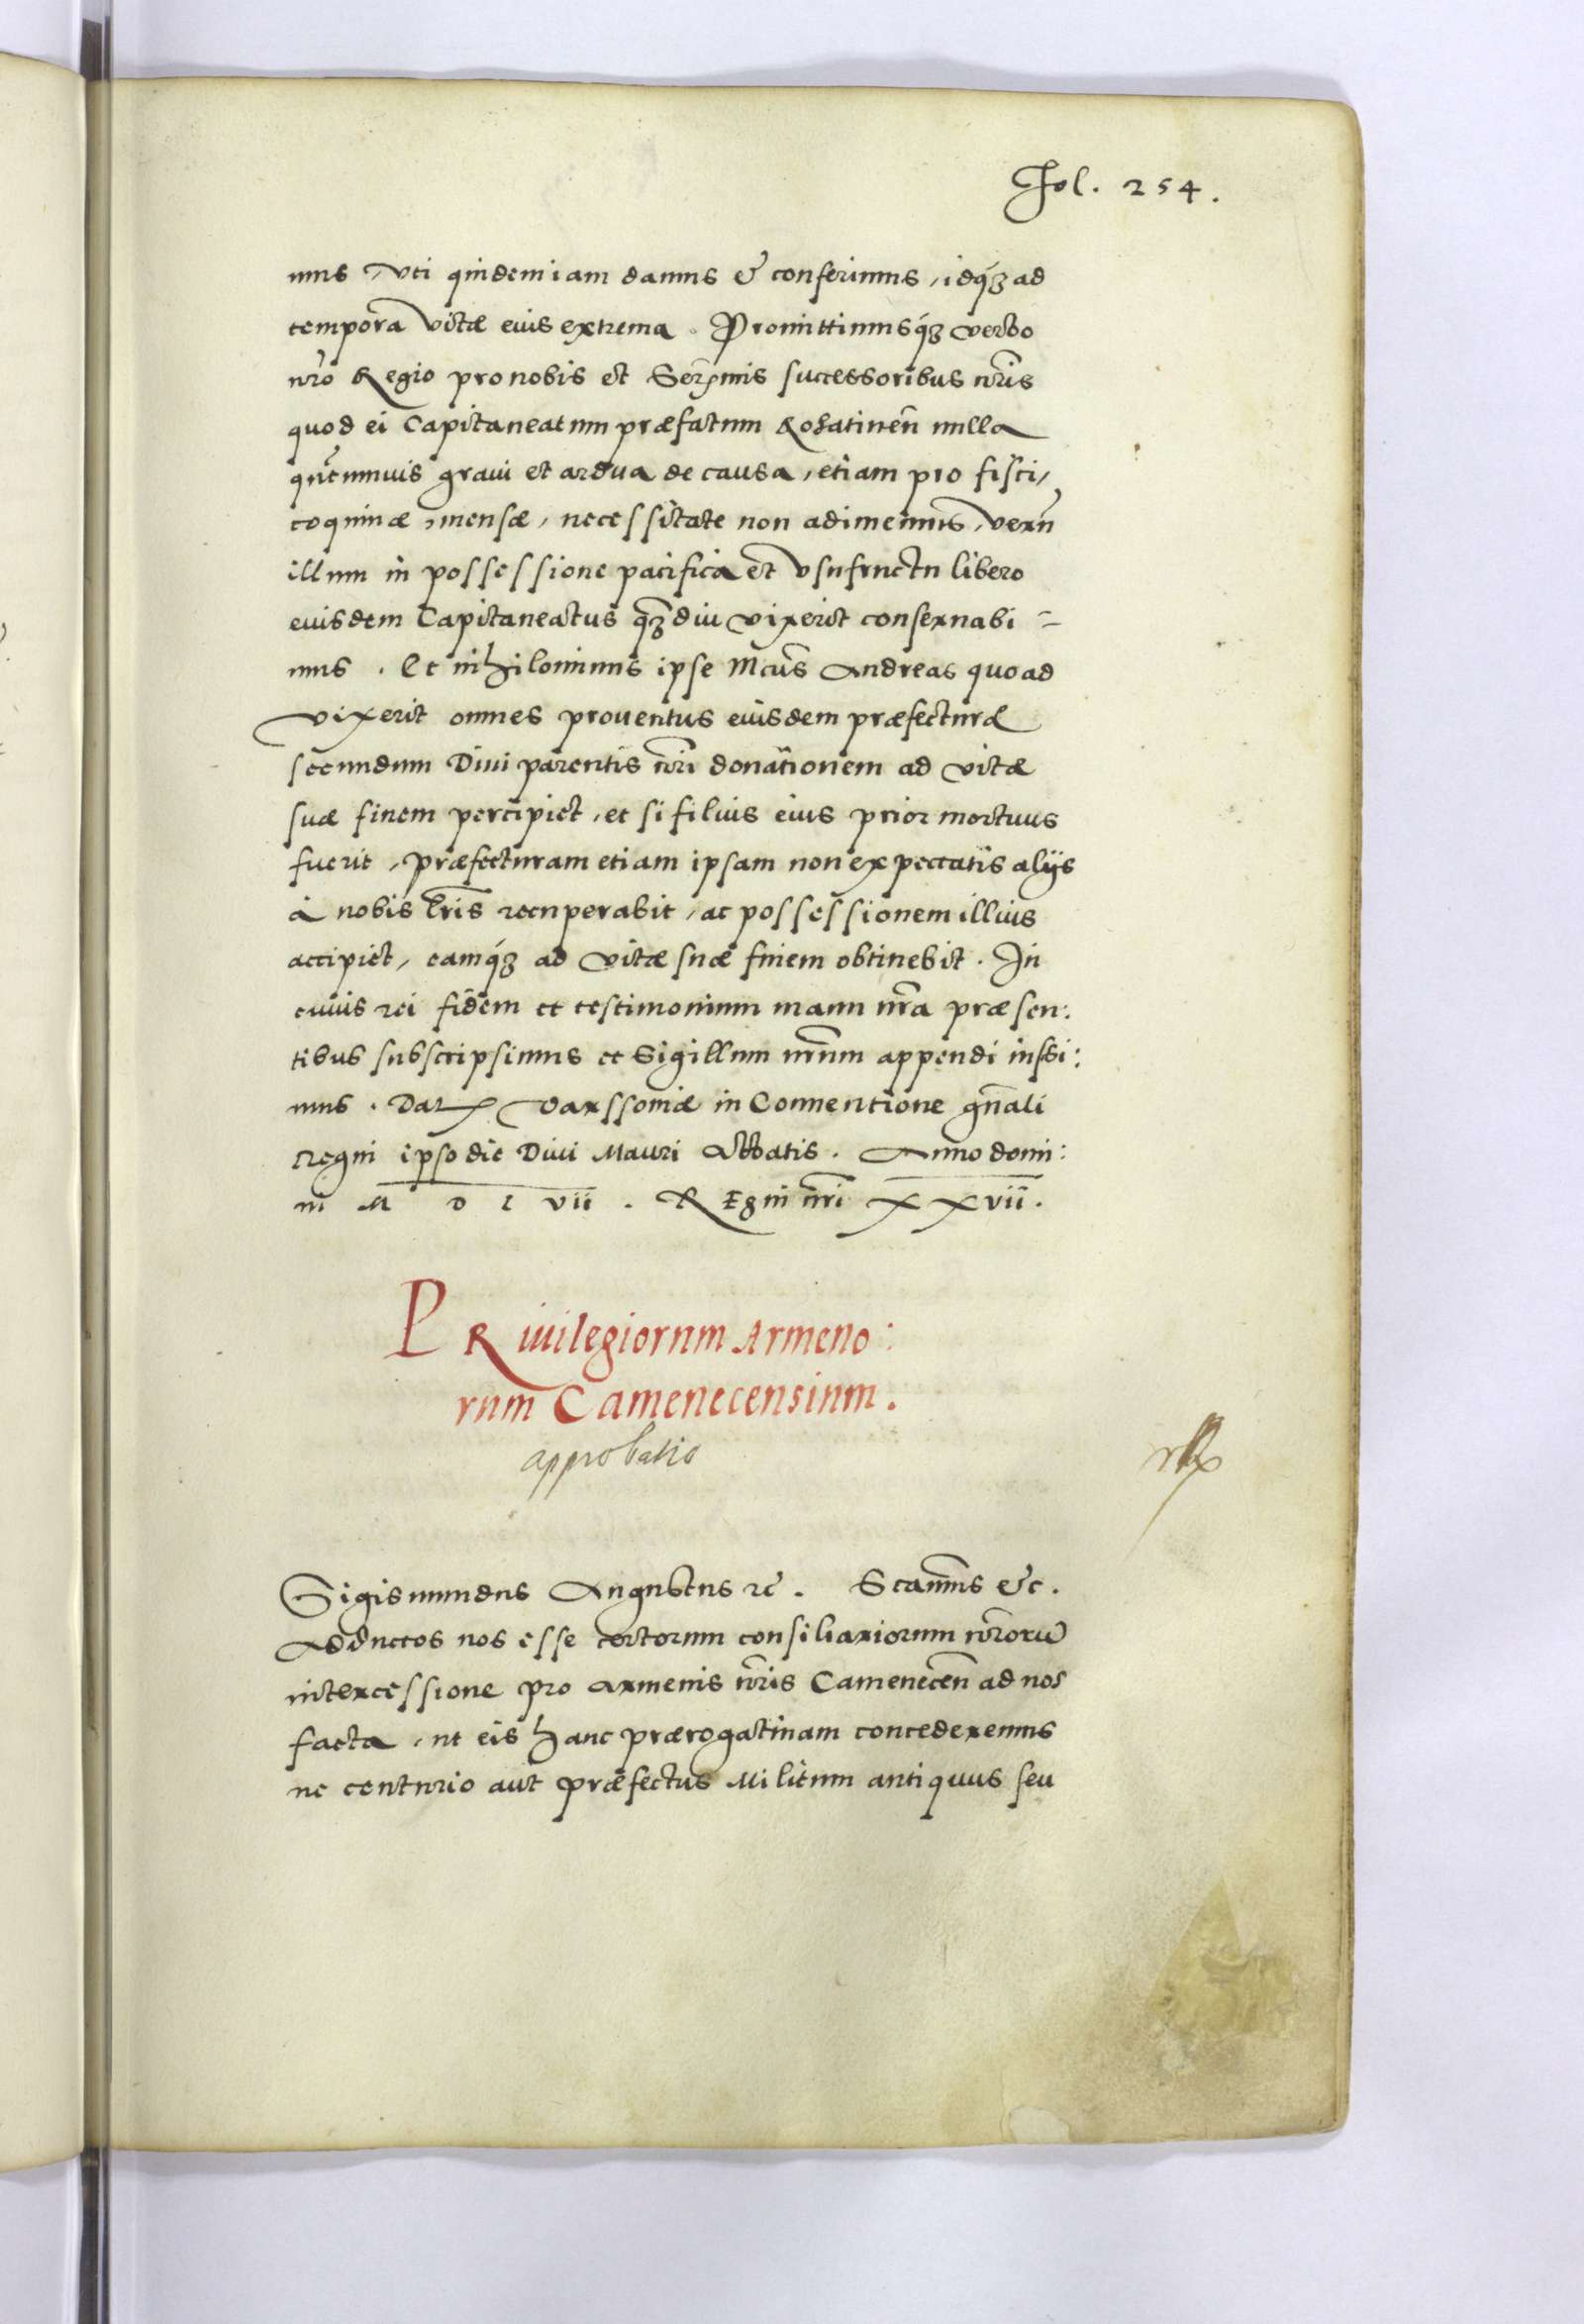 Fol. 254.
mus, vti quidem iam damus & conferimus, idq́ꝫ ad
tempora vitæ eius extrema. Promittimusq́ꝫ verbo
nr̃o Regio pro nobis et Ser̃mis successoribus nr̃is
quod ei Capitaneatum præfatum Rohatineñ nulla
quãtumuis graui et ardua de causa, etiam pro fisci,
coquinæ, mensæ, necessitate non adimemus, verũ
illum in possessione pacifica et vsufructu libero
eiusdem Capitaneatus qꝫ̃diu vixerit conseruabi=
mus. Et nihilominus ipse Mcus̃ Andreas quoad
vixerit omnes prouentus eiusdem præfecturæ
secundum Diui parentis nr̃i donationem ad vitæ
suæ finem percipiet, et si filius eius prior mortuus
fuerit, præfecturam etiam ipsam non expectatis alijs
à nobis lr̃is recuperabit, ac possessionem illius
accipiet, eamq́ꝫ ad vitæ suæ finem obtinebit. In
cuius rei fidem et testimonium manu nr̃a præsen:
tibus subscripsimus et Sigillum nr̃um appendi iussi:
mus. Dat Varssouiæ in Conuentione gñali
regni ipso die Diui Mauri Abbatis. Anno domi:
ni M D L vii. Regni nr̃i XXvii.
PRiuilegiorum Armeno:
rum Camenecensium.
approbatio
Sigismundus Augustus rc̃. Scam̃us &c.
Adductos nos esse certorum consiliariorum nr̃orũ
intercessione pro Armenis nr̃is Cameneceñ ad nos
facta, ut eis hanc prærogatiuam concederemus
ne centurio aut præfectus Militum antiquus seu